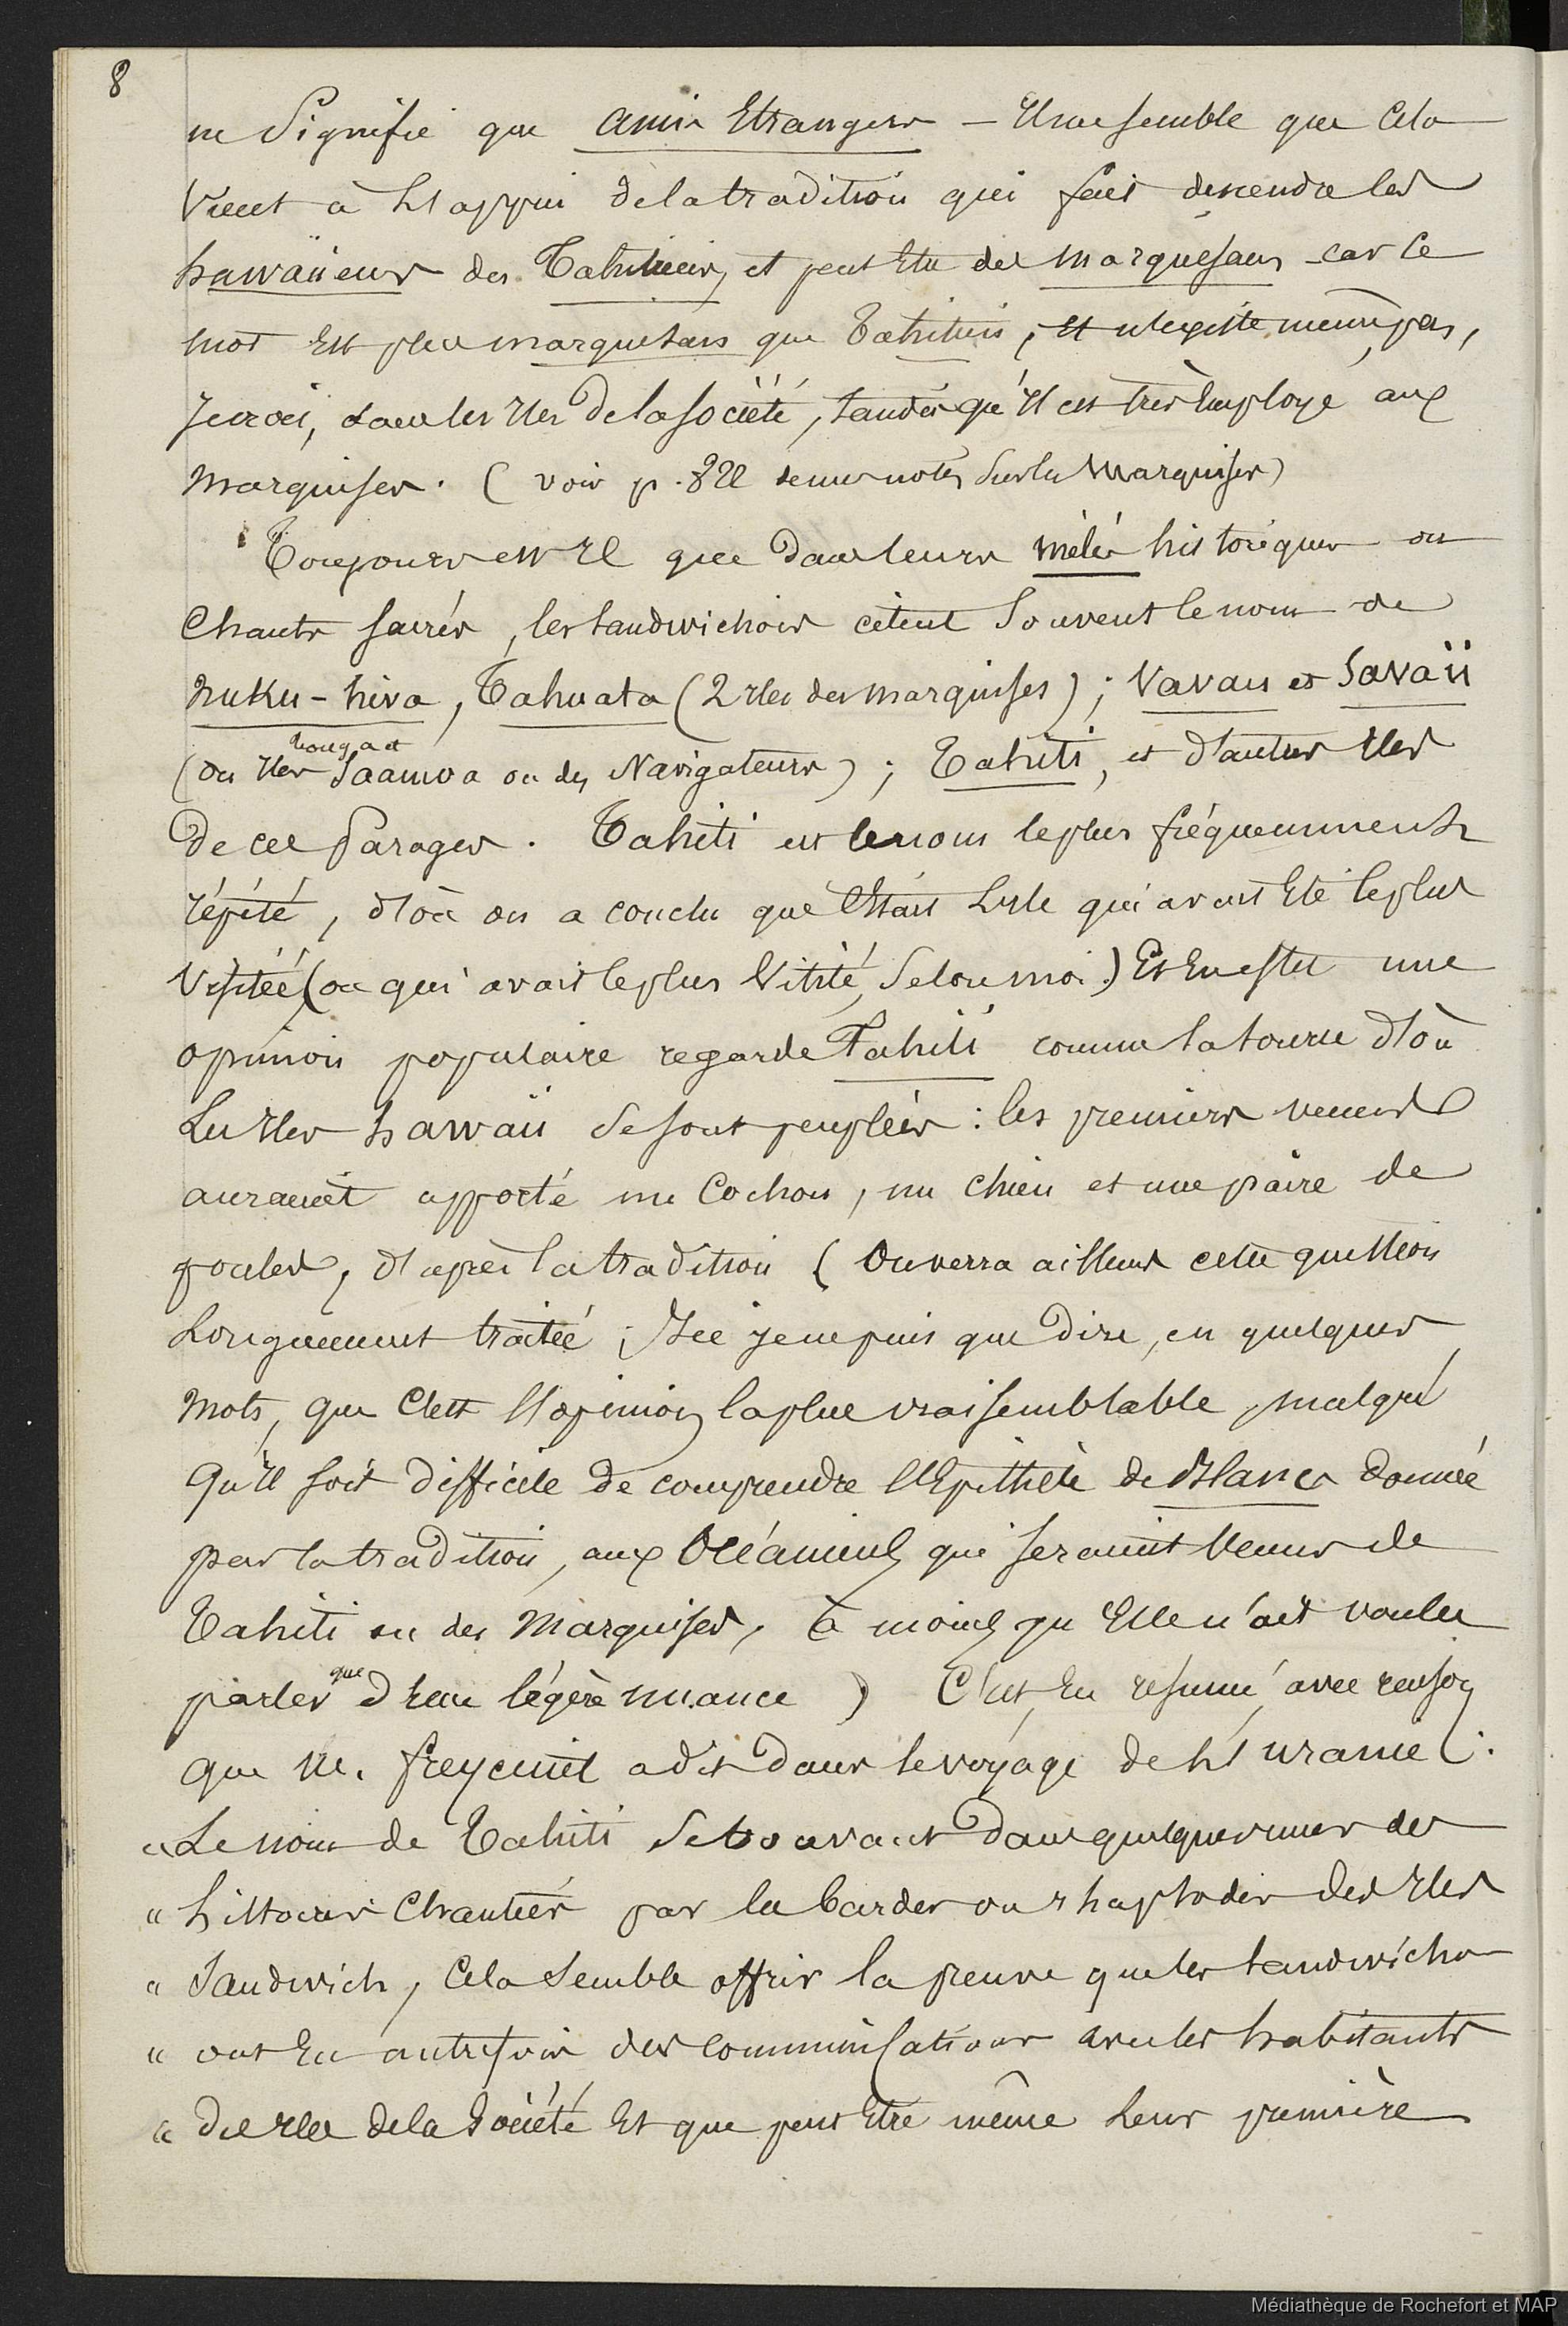 8
ne signifie que amis Etrangers – Il me semble que Cela
vient à l'appui de la tradition qui fait descendre les
hawaïiens des Tahitiens, et peut Etre des marquésans car le
mot Est plus marquésans que Tahitien, Et n'existe même pas,
Je crois, dans les Iles de la Société, tandis qu'Il est très Employé aux
marquises. (voir p. de mes notes sur les Marquises)
Toujours est Il que dans leurs mélés historiques ou
Chants sacrés, les Sandwichois citent souvent le nom de
nuku-hiva, Tahuata (2 Iles des marquises); Vavau et Savaïi
(des Iles tonga et Saamoa ou des Navigateurs); Tahiti, et d'autres Iles
de ces Parages. Tahiti est le nom le plus fréquemment
répété, d'où on a conclu que C'était L'Ile qui avait Eté le plus
visitée (ou qui avait le plus visité, selon moi.) Et En effet une
opinion populaire regarde Tahiti comme la source d'où
Les Iles hawaii se sont peuplées : les premiers venus
auraient apporté un Cochon, un chien et une paire de
poules, d'après la tradition (On verra ailleurs cette question
Longuement traitée ; Ici je ne puis que dire, en quelques
mots, que C'est l'opinion la plus vraisemblable, malgré
qu'Il soit difficile de comprendre l'Epithète de Blancs donnée
par la tradition, aux Océaniens qui seraient Venus de
Tahiti ou des Marquises, à moins qu'Elle n'ait voulu
parler que d'une légère nuance) C'est, En résumé, avec raison
que M. freycinet a dit dans le voyage de L'uranie :
« Le nom de Tahiti se trouvant dans quelques unes des
" histoires Chantées par les bardes ou rhapsodes des Iles
" Sandwich, Cela semble offrir la preuve que les Sandwichois
" ont Eu autrefois des communications avec les habitants
" des Iles de la Société Et que peut Etre même Leur première
Médiathèque de Rochefort et MAP